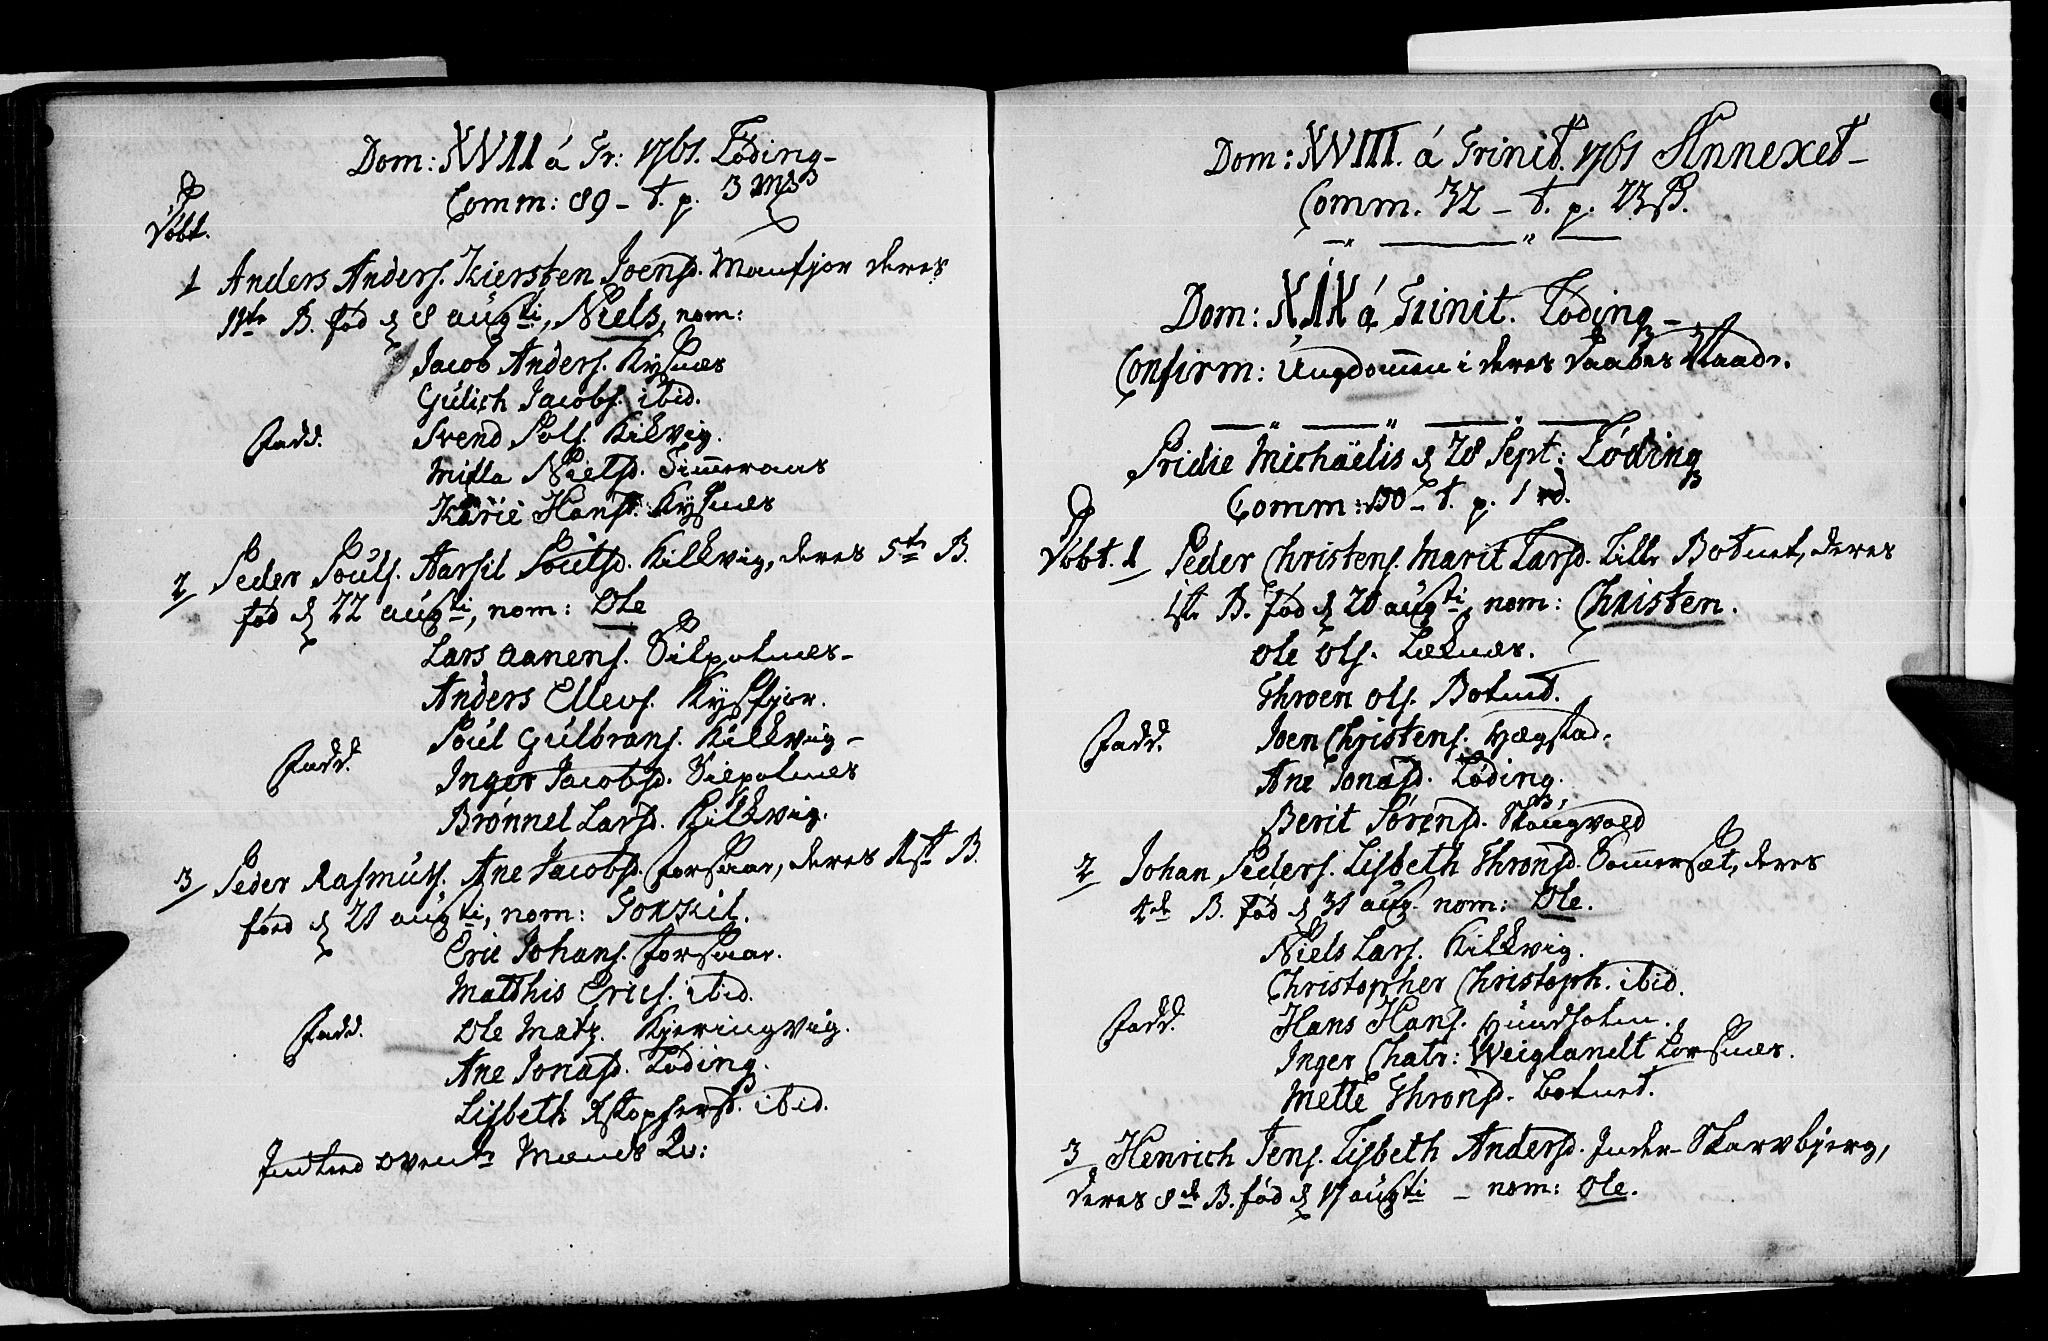 Dom: XVII á Tr: 1761. Løding-
Comm: 89 - t. p. 3 mk
Døbt.
1 Anders Anders. Kiersten Joensd. Manfjor deres
B. fød d 8 augti, Niels, nom:
Jacob Anders. Kysnæs
Gulich Jacobs. ibid.
Fadd. Svend Pols. Kilkvig.
Milla Nielsd. Timmeraas
Karie Hansd. Kysnæs
2/ Peder Pouls. Aarsil Poulsd. Kilkvig, deres 5te B.
fød d 22 augti, nom: Ole
Lars Aanens. Silpolnes-
Anders Ellevs. Kysfjor.
Poul Gulbrans. Kilkvig-
Fadd. Inger Jacobsd. Silpolnes
Brønnel Larsd. Kilkvig.
3/ Peder Rasmus. Ane Jacobsd. Forsaar, deres 1st B.
fød d 21 augti, nom: Torkil.
Eric Johans. Forsaar.
Matthis Erics. ibid.
Fadd. Ole Matz. Kjeringvig.
Ane Jonasd. Løding.
Lisbeth Xstophersd. ibid.
Indled oven Mands Qv:
Dom: XVIII. á Trinit. 1761 Annexet-
Comm. 32 - t. p. 23 ß.
Dom: XIX á Trinit. Løding-
Confirm: Ungdommen i deres Daabes Naade.
Pridie Michaëlis d 28 Sept: Løding
Comm: 130 - t. p. 1 rd.
Døbt. 1/ Peder Christens. Marit Larsd. Lille Botnet, deres
1ste B. fød d 20 augti, nom: Christen.
Ole Ols. Leknæs.
Thron Ols. Botnet.
Fadd. Joen Christens. Hægstad.
Ane Jonasd. Løding.
Berit Sørensd. Skougvold
2/ Johan Peders. Lisbeth Thronsd. Sommersæt, deres
4de B. fød d 31 aug. nom: Ole.
Niels Lars. Kilkvig.
Christopher Christoph. ibid.
Fadd. Hans Hans. Hundholm.
Inger Chatr: Weiglandt Korsnæs.
Mette Thronsd. Botnet.
3/ Henrich Jens. Lisbeth Andersd. Inder-Skarvbjerg,
deres 8de B. fød d 17 augti - nom: Ole.